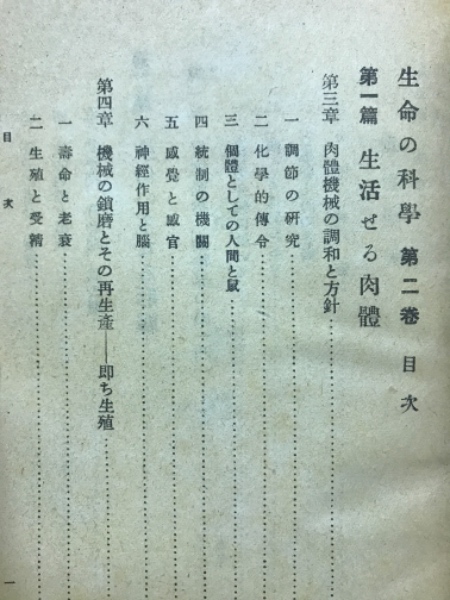 生命の科學 第二卷 目次
第一篇 生活せる肉體
第三章 肉體機械の調和と方針
一 調節の硏究
二 化學的傳令
三 個體としての人間と鼠
四 統制の機關
五 感覺と感官
六 神經作用と腦
第四章 機械の銷磨とその再生產――卽ち生殖
一 壽命と老衰
二 生殖と受精
目次
一